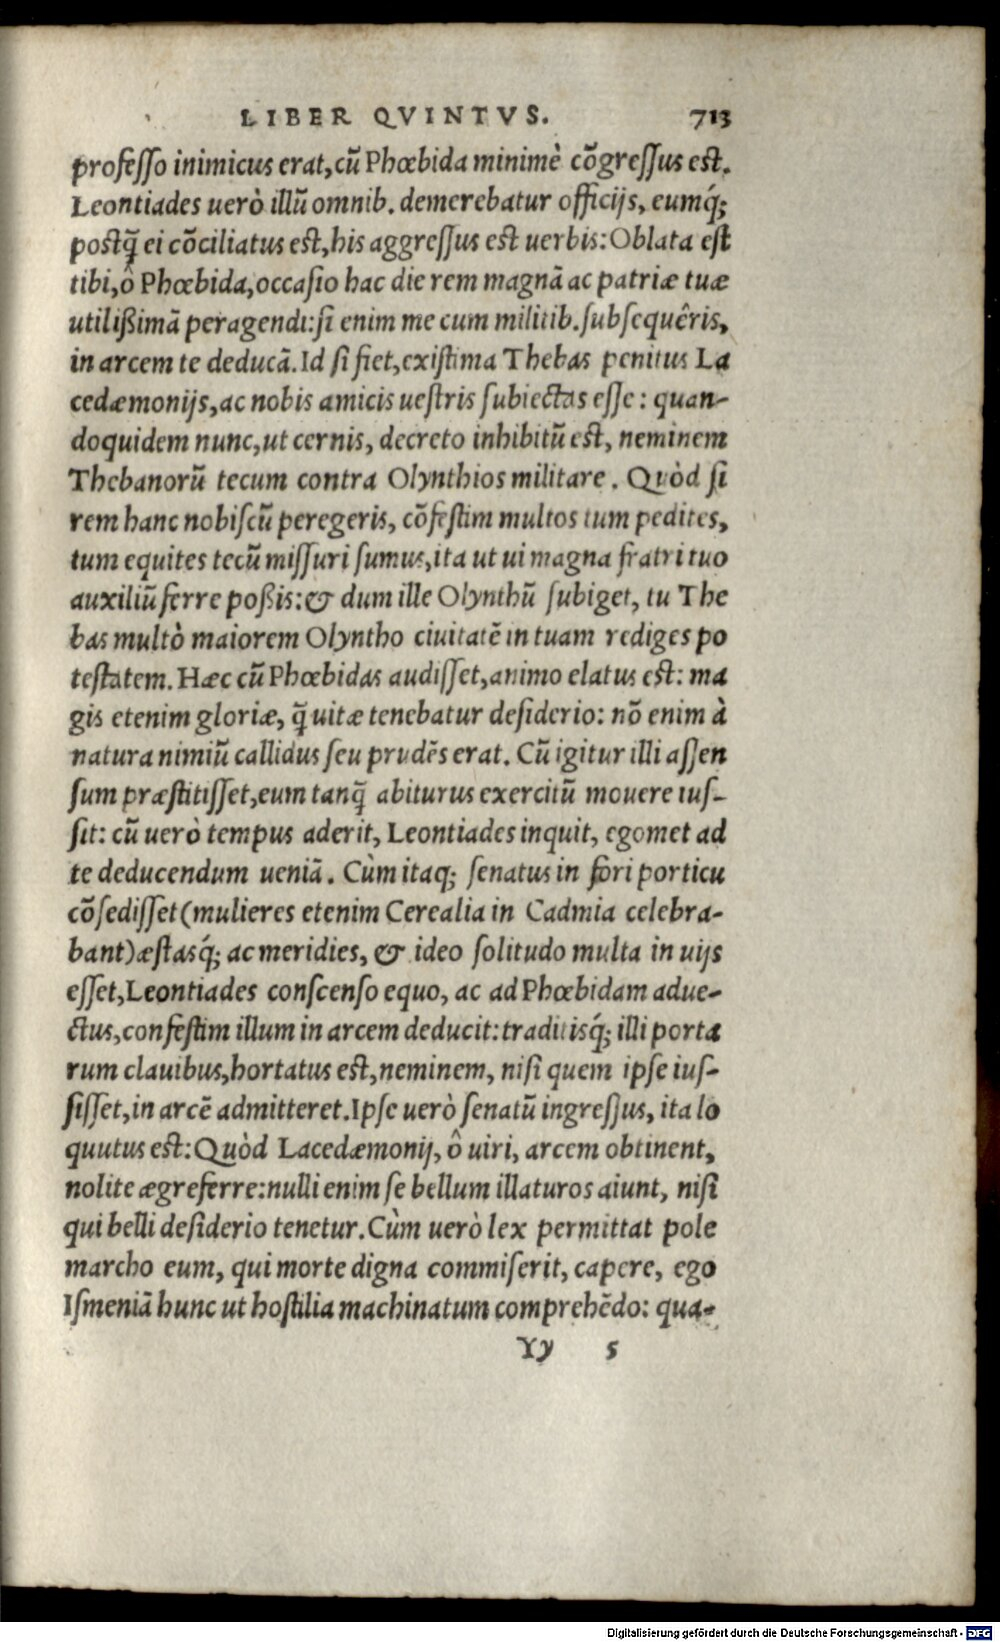 LIBER QVINTVS. 713
professo inimicus erat, cũ Phœbida minimè cõgressus est.
Leontiades uerò illũ omnib. demerebatur officijs, eumq́;
postq̃ ei cõciliatus est, his aggressus est uerbis: Oblata est
tibi, ô Phœbida, occasio hac die rem magnã ac patriæ tuæ
utilißimã peragendi: si enim me cum militib. subsequêris,
in arcem te deducã. Id si fiet, existima Thebas penitus La
cedæmonijs, ac nobis amicis uestris subiectas esse: quan-
doquidem nunc, ut cernis, decreto inhibitũ est, neminem
Thebanorũ tecum contra Olynthios militare. Quòd si
rem hanc nobiscũ peregeris, cõfestim multos tum pedites,
tum equites tecũ missuri sumus, ita ut ui magna fratri tuo
auxiliũ ferre poßis: & dum ille Olynthũ subiget, tu The
bas multò maiorem Olyntho ciuitatẽ in tuam rediges po
testatem. Hæc cũ Phœbidas audisset, animo elatus est: ma
gis etenim gloriæ, q̃ uitæ tenebatur desiderio: nõ enim à
natura nimiũ callidus seu prudẽs erat. Cũ igitur illi assen
sum præstitisset, eum tanq̃ abiturus exercitũ mouere ius-
sit: cũ uerò tempus aderit, Leontiades inquit, egomet ad
te deducendum ueniã. Cùm itaq; senatus in fori porticu
cõsedisset (mulieres etenim Cerealia in Cadmia celebra-
bant) æstasq́; ac meridies, & ideo solitudo multa in uijs
esset, Leontiades conscenso equo, ac ad Phœbidam adue-
ctus, confestim illum in arcem deducit: traditisq́; illi porta
rum clauibus, hortatus est, neminem, nisi quem ipse ius-
sisset, in arcẽ admitteret. Ipse uerò senatũ ingressus, ita lo
quutus est: Quòd Lacedæmonij, ô uiri, arcem obtinent,
nolite ægre ferre: nulli enim se bellum illaturos aiunt, nisi
qui belli desiderio tenetur. Cùm uerò lex permittat pole
marcho eum, qui morte digna commiserit, capere, ego
Ismeniã hunc ut hostilia machinatum comprehẽdo: qua-
Yy 5
Digitalisierung gefördert durch die Deutsche Forschungsgemeinschaft - DFG